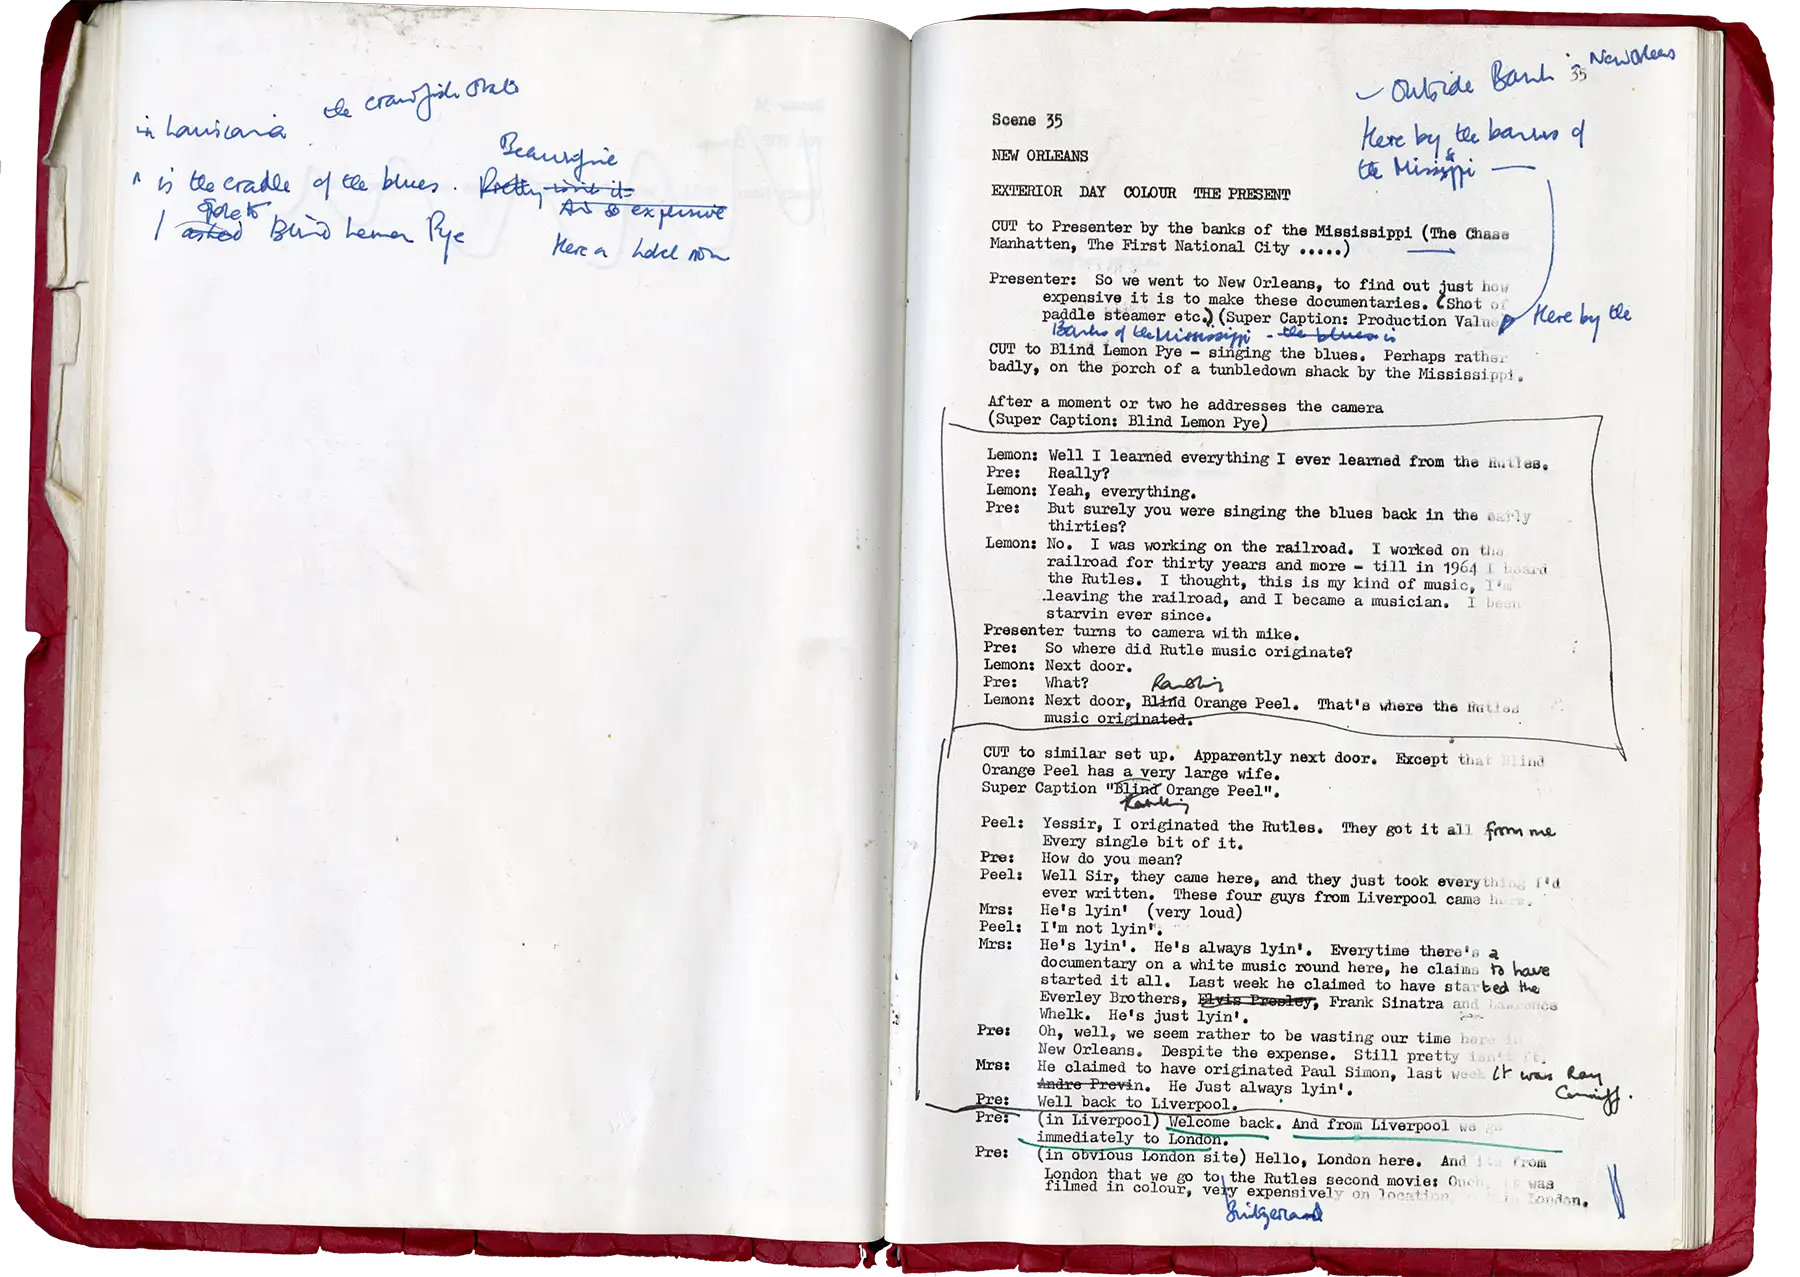 the crawfish State
in Louisiana
Beausofine
^ is the cradle of the blues. Pretty isn't it
And so expensive
spoke to
I asked Blind Lemon Pye
Here a hotel now
— Outside Bank in New Orleans
35
Here by the banks of
the Mississippi —
Scene 35
NEW ORLEANS
EXTERIOR DAY COLOUR THE PRESENT
CUT to Presenter by the banks of the Mississippi (The Chase
Manhatten, The First National City .....)
Presenter: So we went to New Orleans, to find out just how
expensive it is to make these documentaries. (Shot of
paddle steamer etc.) (Super Caption: Production Value
Here by the
Banks of the Mississippi - the blues is
CUT to Blind Lemon Pye - singing the blues. Perhaps rather
badly, on the porch of a tunbledown shack by the Mississippi.
After a moment or two he addresses the camera
(Super Caption: Blind Lemon Pye)
Lemon: Well I learned everything I ever learned from the Rutles.
Pre: Really?
Lemon: Yeah, everything.
Pre: But surely you were singing the blues back in the early
thirties?
Lemon: No. I was working on the railroad. I worked on the
railroad for thirty years and more - till in 1964 I heard
the Rutles. I thought, this is my kind of music, I'm
leaving the railroad, and I became a musician. I been
starvin ever since.
Presenter turns to camera with mike.
Pre: So where did Rutle music originate?
Lemon: Next door.
Pre: What?
Rambling
Lemon: Next door, Blind Orange Peel. That's where the Rutles
music originated.
CUT to similar set up. Apparently next door. Except that Blind
Orange Peel has a very large wife.
Super Caption "Blind Orange Peel".
Rambling
Peel: Yessir, I originated the Rutles. They got it all from me
Every single bit of it.
Pre: How do you mean?
Peel: Well Sir, they came here, and they just took everything I'd
ever written. These four guys from Liverpool came here.
Mrs: He's lyin' (very loud)
Peel: I'm not lyin'.
Mrs: He's lyin'. He's always lyin'. Everytime there's a
documentary on a white music round here, he claims to have
started it all. Last week he claimed to have started the
Everley Brothers, Elvis Presley, Frank Sinatra and Lawrence
Whelk. He's just lyin'.
Pre: Oh, well, we seem rather to be wasting our time here in
New Orleans. Despite the expense. Still pretty isn't it.
Mrs: He claimed to have originated Paul Simon, last week it was Ray
Conniff.
Andre Previn. He Just always lyin'.
Pre: Well back to Liverpool.
Pre: (in Liverpool) Welcome back. And from Liverpool we go
immediately to London.
Pre: (in obvious London site) Hello, London here. And its from
London that we go to the Rutles second movie: Ouch, it was
filmed in colour, very expensively on location, in London.
Switzerland